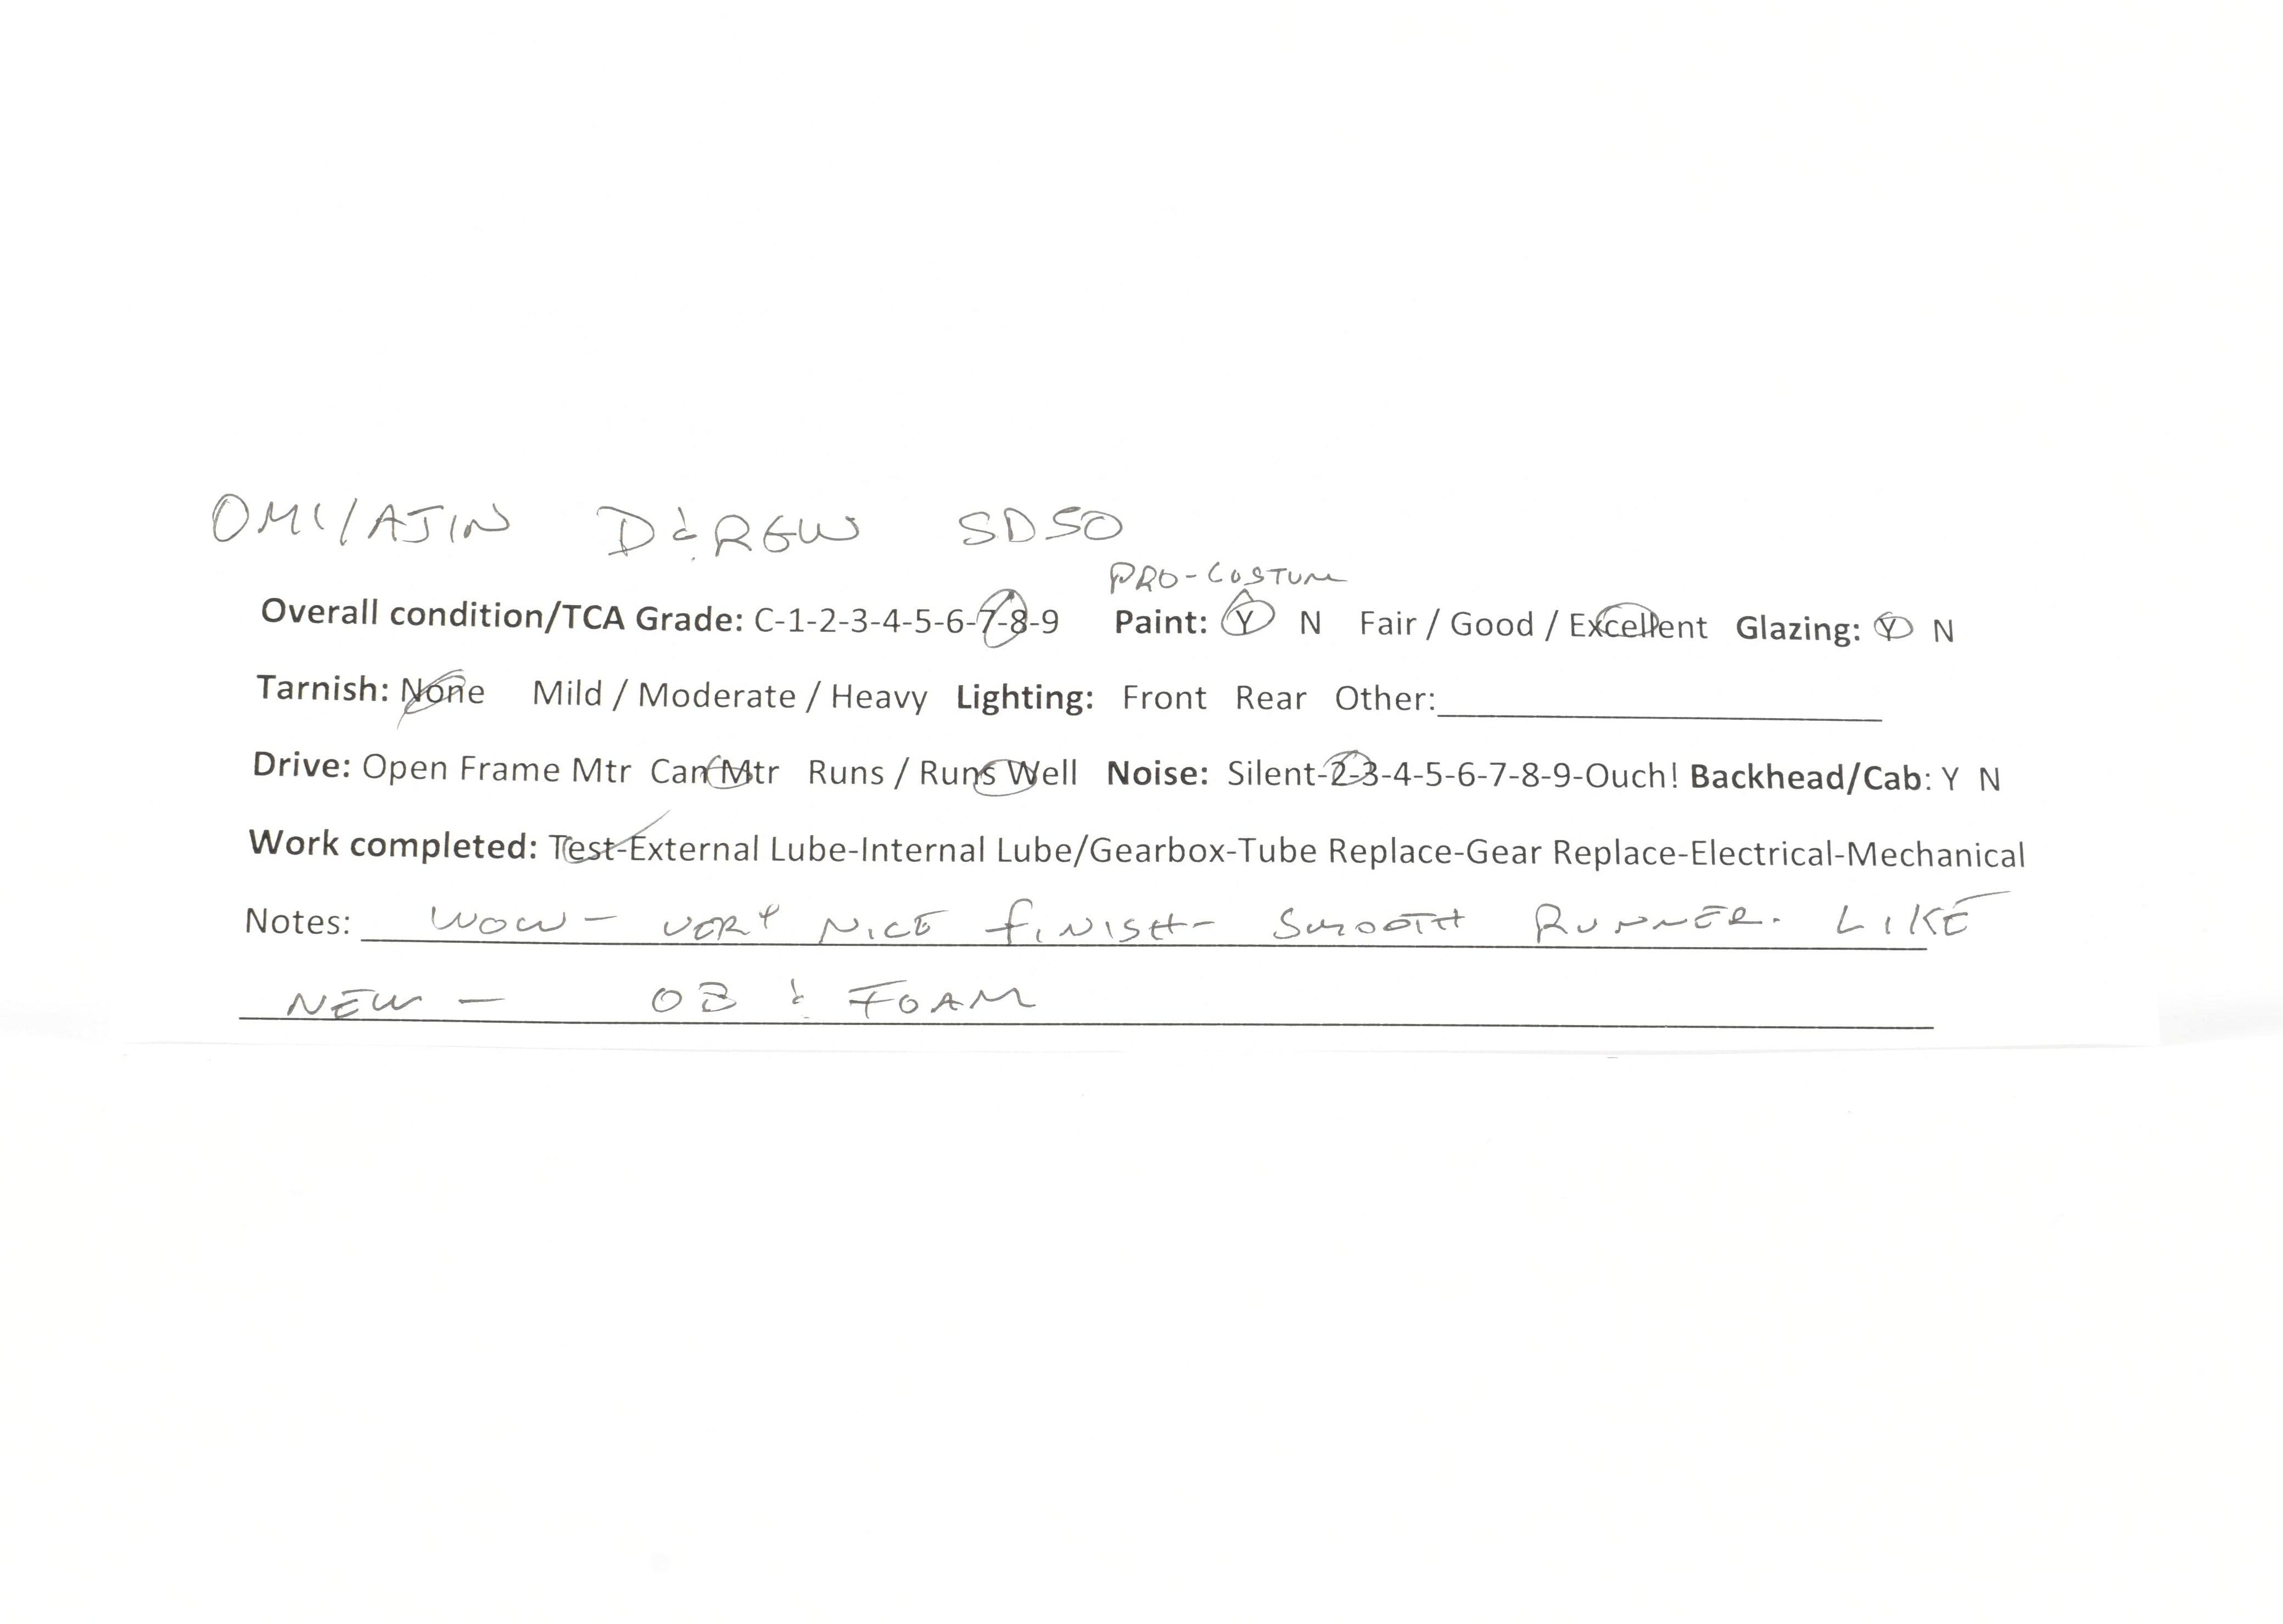 OMI/AJIN D&RGW SD50
PRO-CUSTUM
Overall condition/TCA Grade: C-1-2-3-4-5-6-7-8-9 Paint: Y N Fair / Good / Excellent Glazing: Y N
Tarnish: None Mild / Moderate / Heavy Lighting: Front Rear Other:
Drive: Open Frame Mtr Can Mtr Runs / Runs Well Noise: Silent-2-3-4-5-6-7-8-9-Ouch! Backhead/Cab: Y N
Work completed: Test-External Lube-Internal Lube/Gearbox-Tube Replace-Gear Replace-Electrical-Mechanical
Notes: WOW - VERY NICE FINISH - SMOOTH RUNNER. LIKE
NEW - OB & FOAM